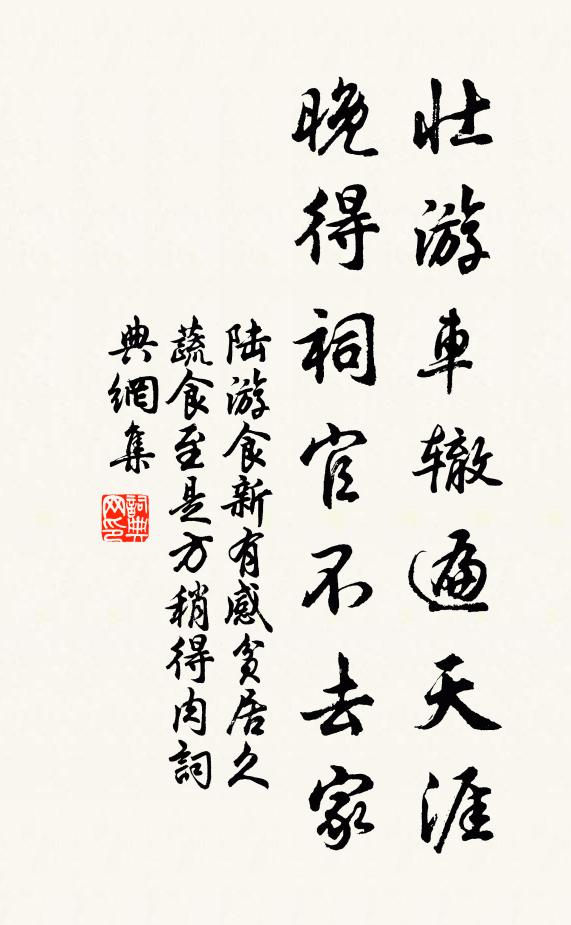 壮游車辙遍天涯
晚得祠官不去家
陆游食新有感貧居久
蔬食至是方稍得肉詞
典網集
詞典
网印